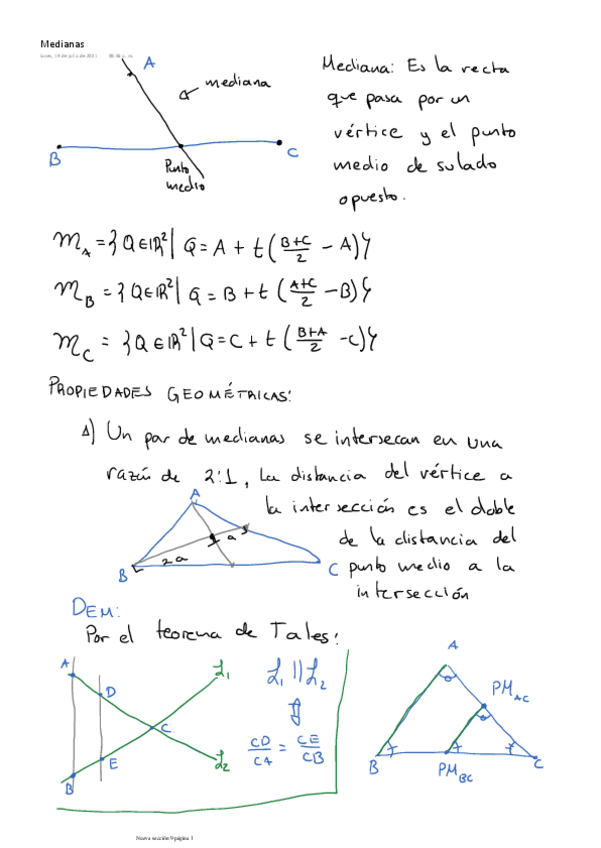 Medianas
lunes, 19 de julio de 2021
A
mediana
B
C
Punto
medio
Mediana: Es la recta
que pasa por un
vértice y el punto
medio de su lado
opuesto.
m_A = {Q ∈ ℝ² | Q = A + t((B+C)/2 - A)}
m_B = {Q ∈ ℝ² | Q = B + t((A+C)/2 - B)}
m_C = {Q ∈ ℝ² | Q = C + t((B+A)/2 - C)}
PROPIEDADES GEOMÉTRICAS:
1) Un par de medianas se intersecan en una
razón de 2:1, La distancia del vértice a
la intersección es el doble
de la distancia del
punto medio a la
intersección
A
a
2a
B
C
DEM:
Por el teorema de Tales:
A
D
C
E
B
L₁
L₂
L₁ || L₂
⇕
CD/CA = CE/CB
A
PM_AC
B
PM_BC
C
Nueva sección 9 página 1